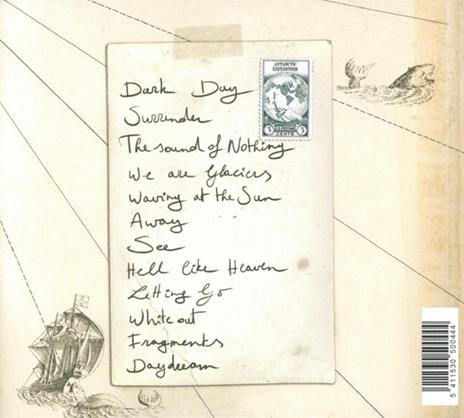 ANTARCTIC
EXPEDITION
Dark Day
Surrender
The sound of Nothing
We are Glaciers
Waving at the Sun
Away
See
Hell like Heaven
Letting Go
White out
Fragments
Daydream
3 CENTS 3
5 411530 500444